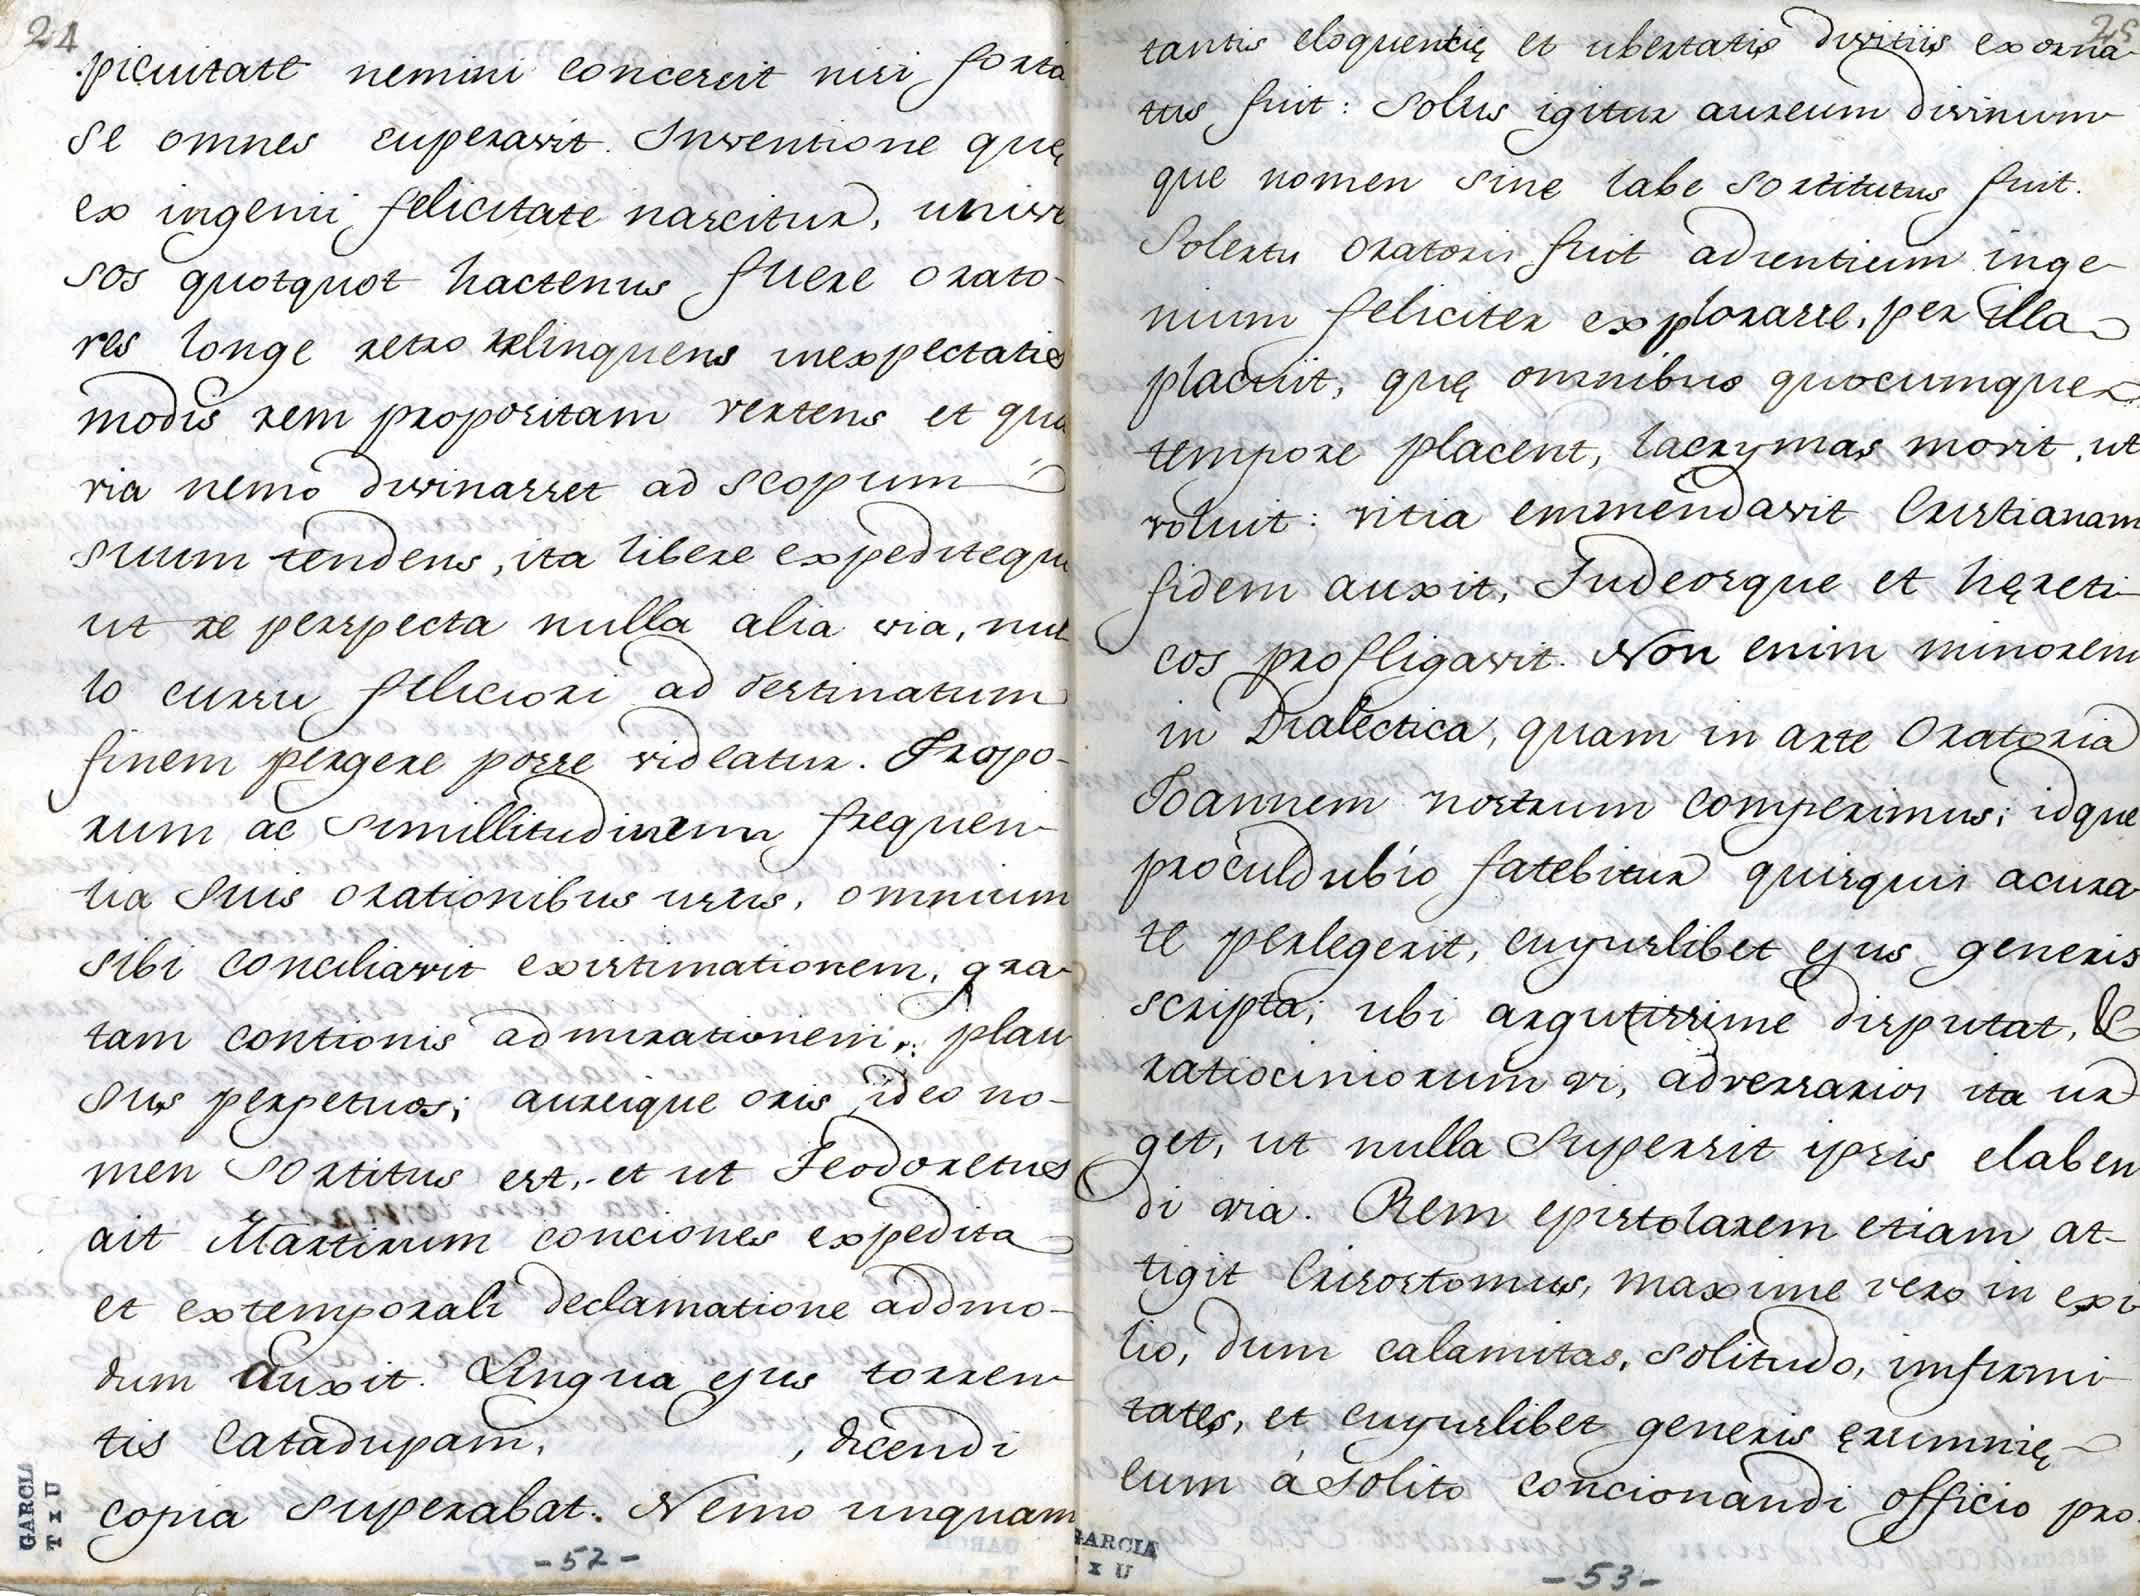 24
picuitate nemini concessit nisi forta
se omnes superavit. Inventione quę
ex ingenii felicitate nascitur, univer
sos quotquot hactenus fuere orato-
res longe retro relinquens inexpectatis
modis rem propositam vertens et qua
via nemo divinasset ad scopum
suum tendens, ita libere expediteque
ut re perspecta nulla alia via, nul
lo cursu feliciori ad destinatum
finem pergere posse videatur. Tropo-
rum ac simillitudinem frequen
tia suis orationibus usus, omnium
sibi conciliavit existimationem, gra
tam contionis admirationem, plau
sus perpetuos; aureique oris ideo no-
men sortitus est, et ut Teodoretus
ait Martirum conciones expedita
et extemporali declamatione addmo-
dum auxit. Lingua ejus torren
tis Catadupam, , dicendi
copia superabat. Nemo unquam
GARCIA
T x U
- 52 -
25
tantis eloquentię et ubertatis divitiis exorna
tus fuit: solus igitur aureum divinum
que nomen sine labe sortitutus fuit.
Solertis oratoris fuit audientium inge
nium feliciter explorasse, per illa
placuit, quę omnibus quocumque
tempore placent, lacrymas movit, ut
voluit: vitia emmendavit Cristianam
fidem auxit, Judeosque et hęreti
cos profligavit. Non enim minorem
in Dialectica, quam in arte Oratoria
Joannem nostrum comperimus; idque
procúldubio fatebitur quisquis acura
te perlegerit, cuyuslibet ejus generis
scripta; ubi argutissime disputat, &
ratiociniorum vi, adversarios ita ur
get, ut nulla supersit ipsis elaben
di via. Rem epistolarem etiam at-
tigit Crisostomus, maxime vero in exi
lio, dum calamitas, solitudo, infirmi
tates, et cuyuslibet generis ęrumnię
eum á solito concionandi officio pro
GARCIA
x U
- 53 -